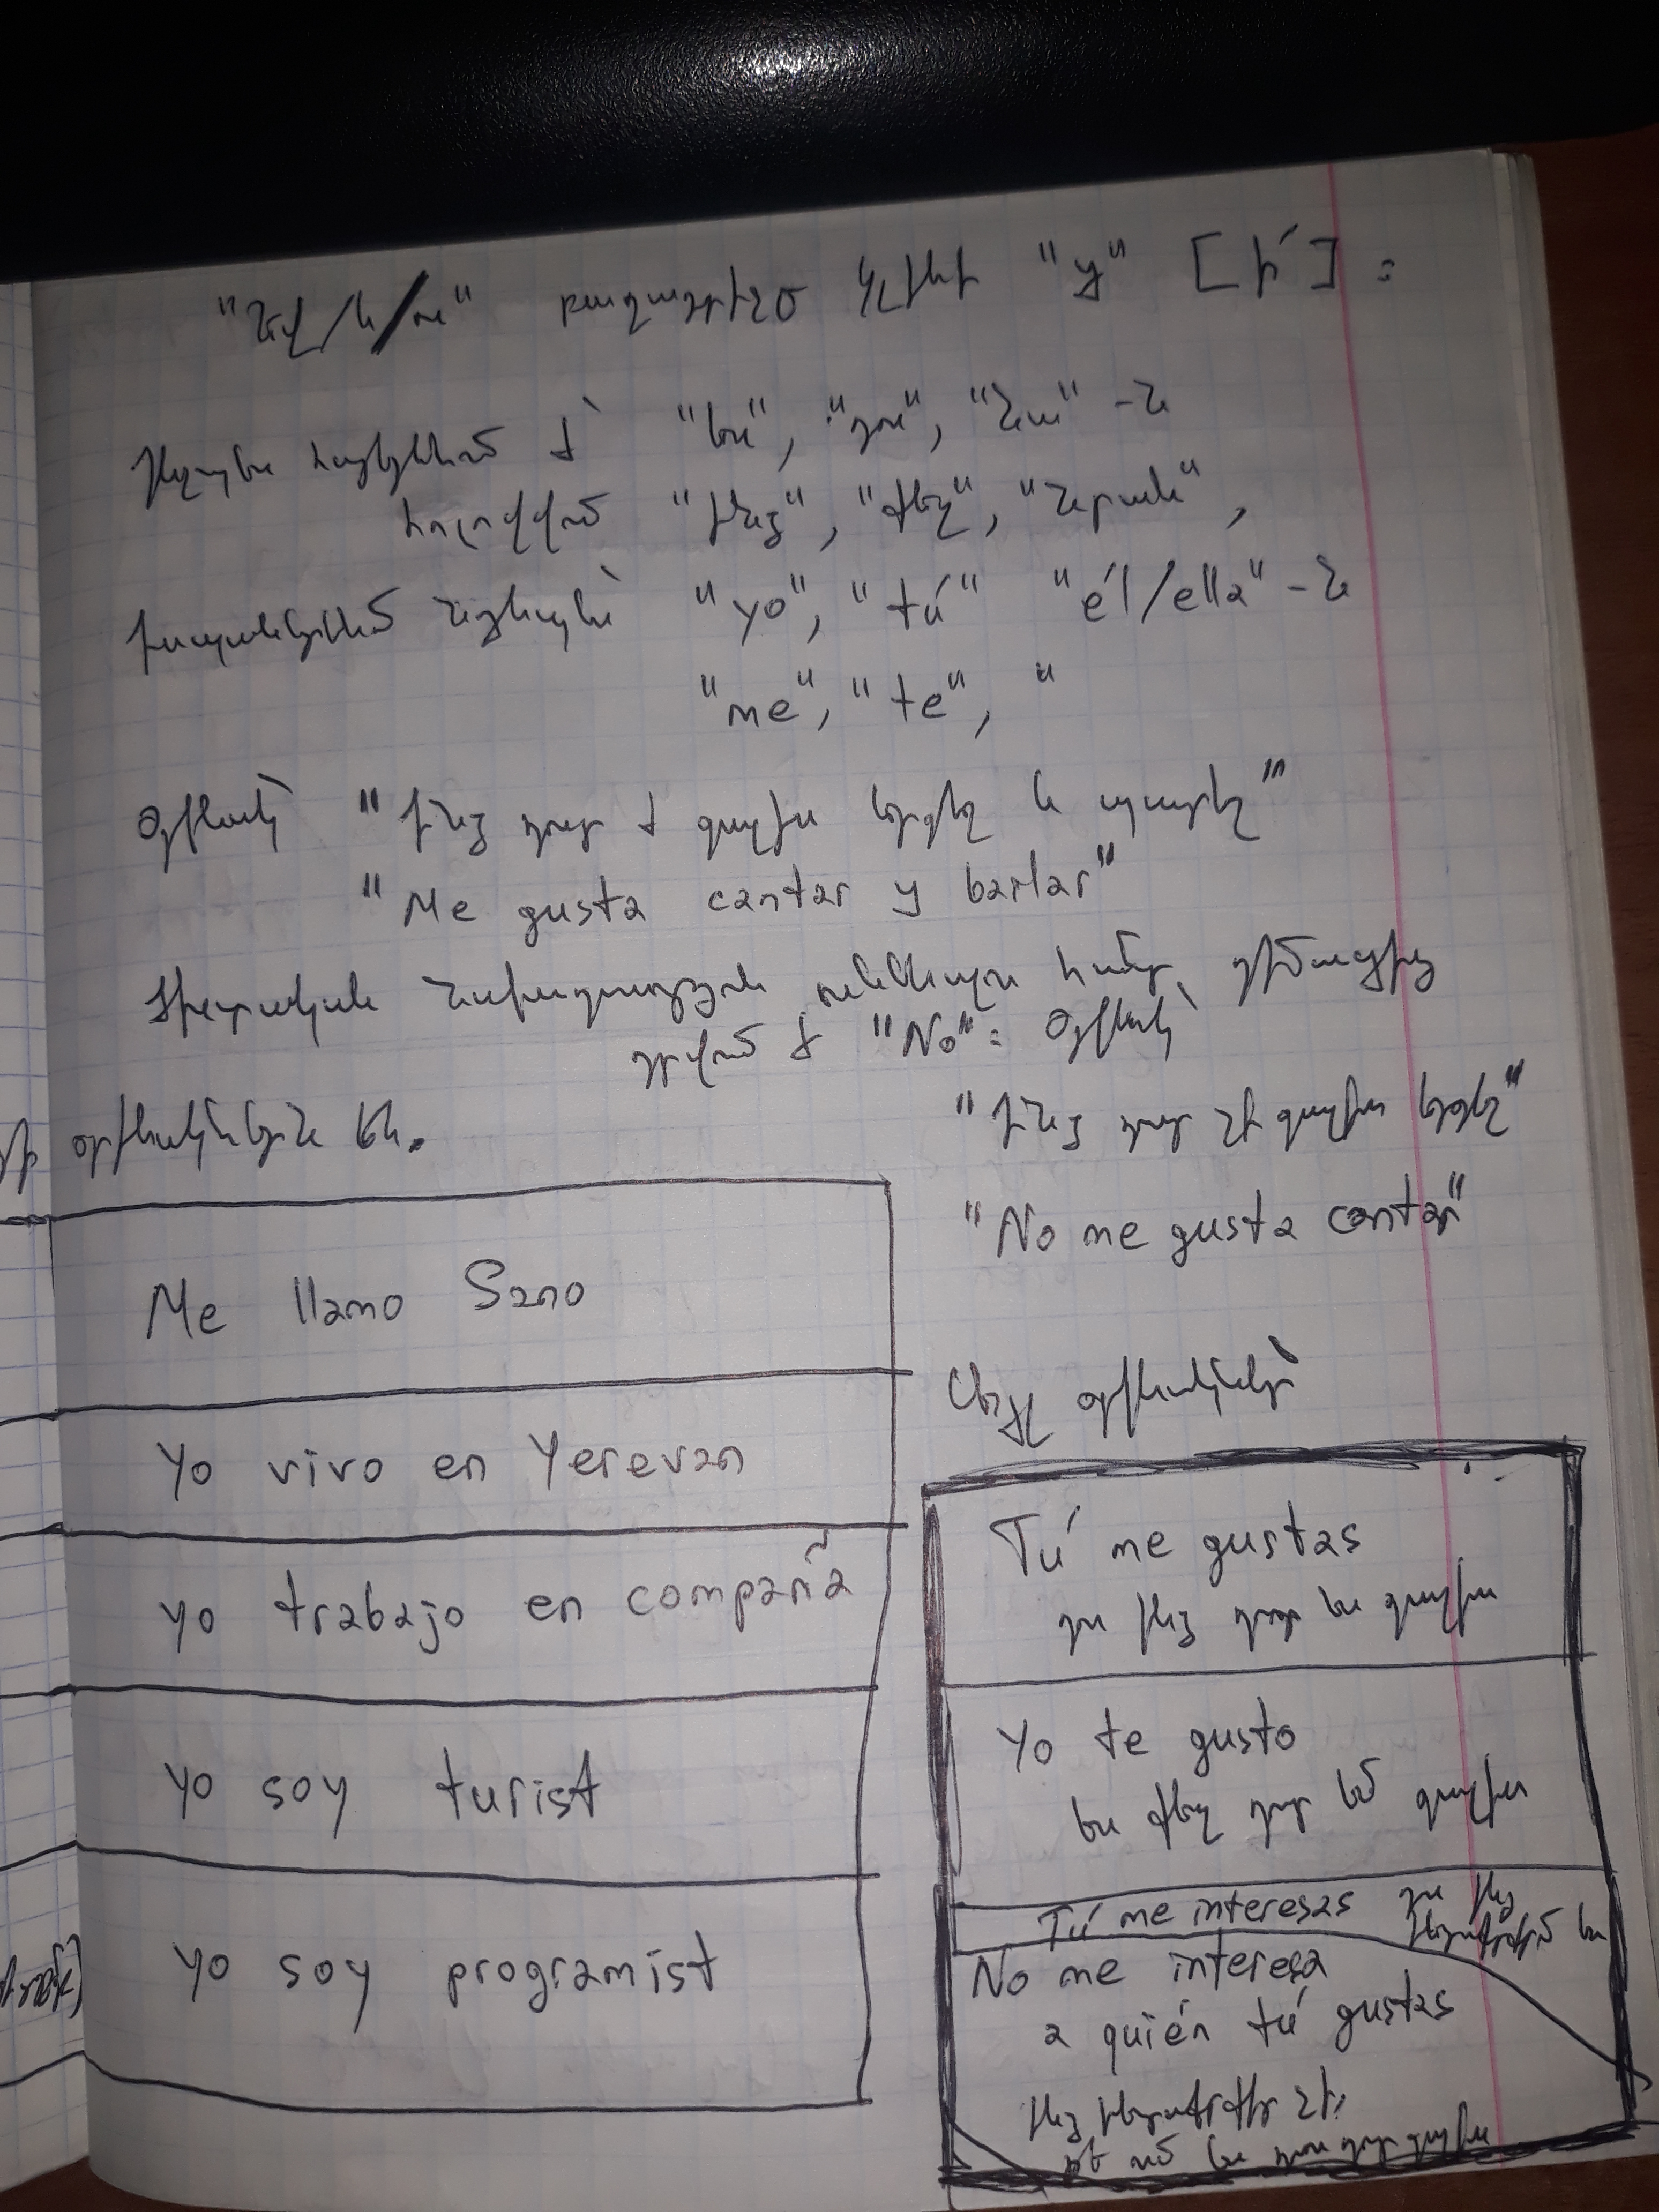 "նվ/և/ու" բաղադրիչը կլինի "y" [ի՛]:
Ինչպես հայերենում է՝ "ես", "դու", "նա" -ն
հոլովվում "ինձ", "քեզ", "նրան",
իսպաներենում նույնպես "yo", "tú" "él/ella" -ն
"me", "te", "
Օրինակ՝ "ինձ դուր է գալիս երգել և պարել"
"Me gusta cantar y bailar"
Ժխտական նախադասություն ունենալու համար, դիմացից
դրվում է "No": Օրինակ՝
"ինձ դուր չի գալիս երգել"
"No me gusta cantar"
օրինակներն են.
Me llamo Sano
Yo vivo en Yerevan
yo trabajo en compañía
yo soy turist
yo soy programist
Այլ օրինակներ՝
Tú me gustas
դու ինձ դուր ես գալիս
Yo te gusto
ես քեզ դուր եմ գալիս
Tú me interesas դու ինձ
հետաքրքրում ես
No me interesa
a quién tú gustas
ինձ հետաքրքիր չի,
թե ում ես դու դուր գալիս